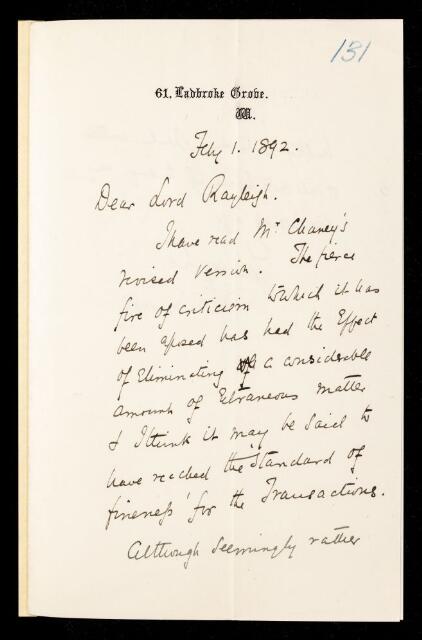 131
61, Ladbroke Grove.
W.
Feby 1. 1892.
Dear Lord Rayleigh.
I have read Mr Chaney's
revised version. The fierce
fire of criticism to which it has
been exposed has had the Effect
of Eliminating a considerable
amount of Extraneous matter
& I think it may be said to
have reached the 'Standard of
fineness' for the Transactions.
Although seemingly rather